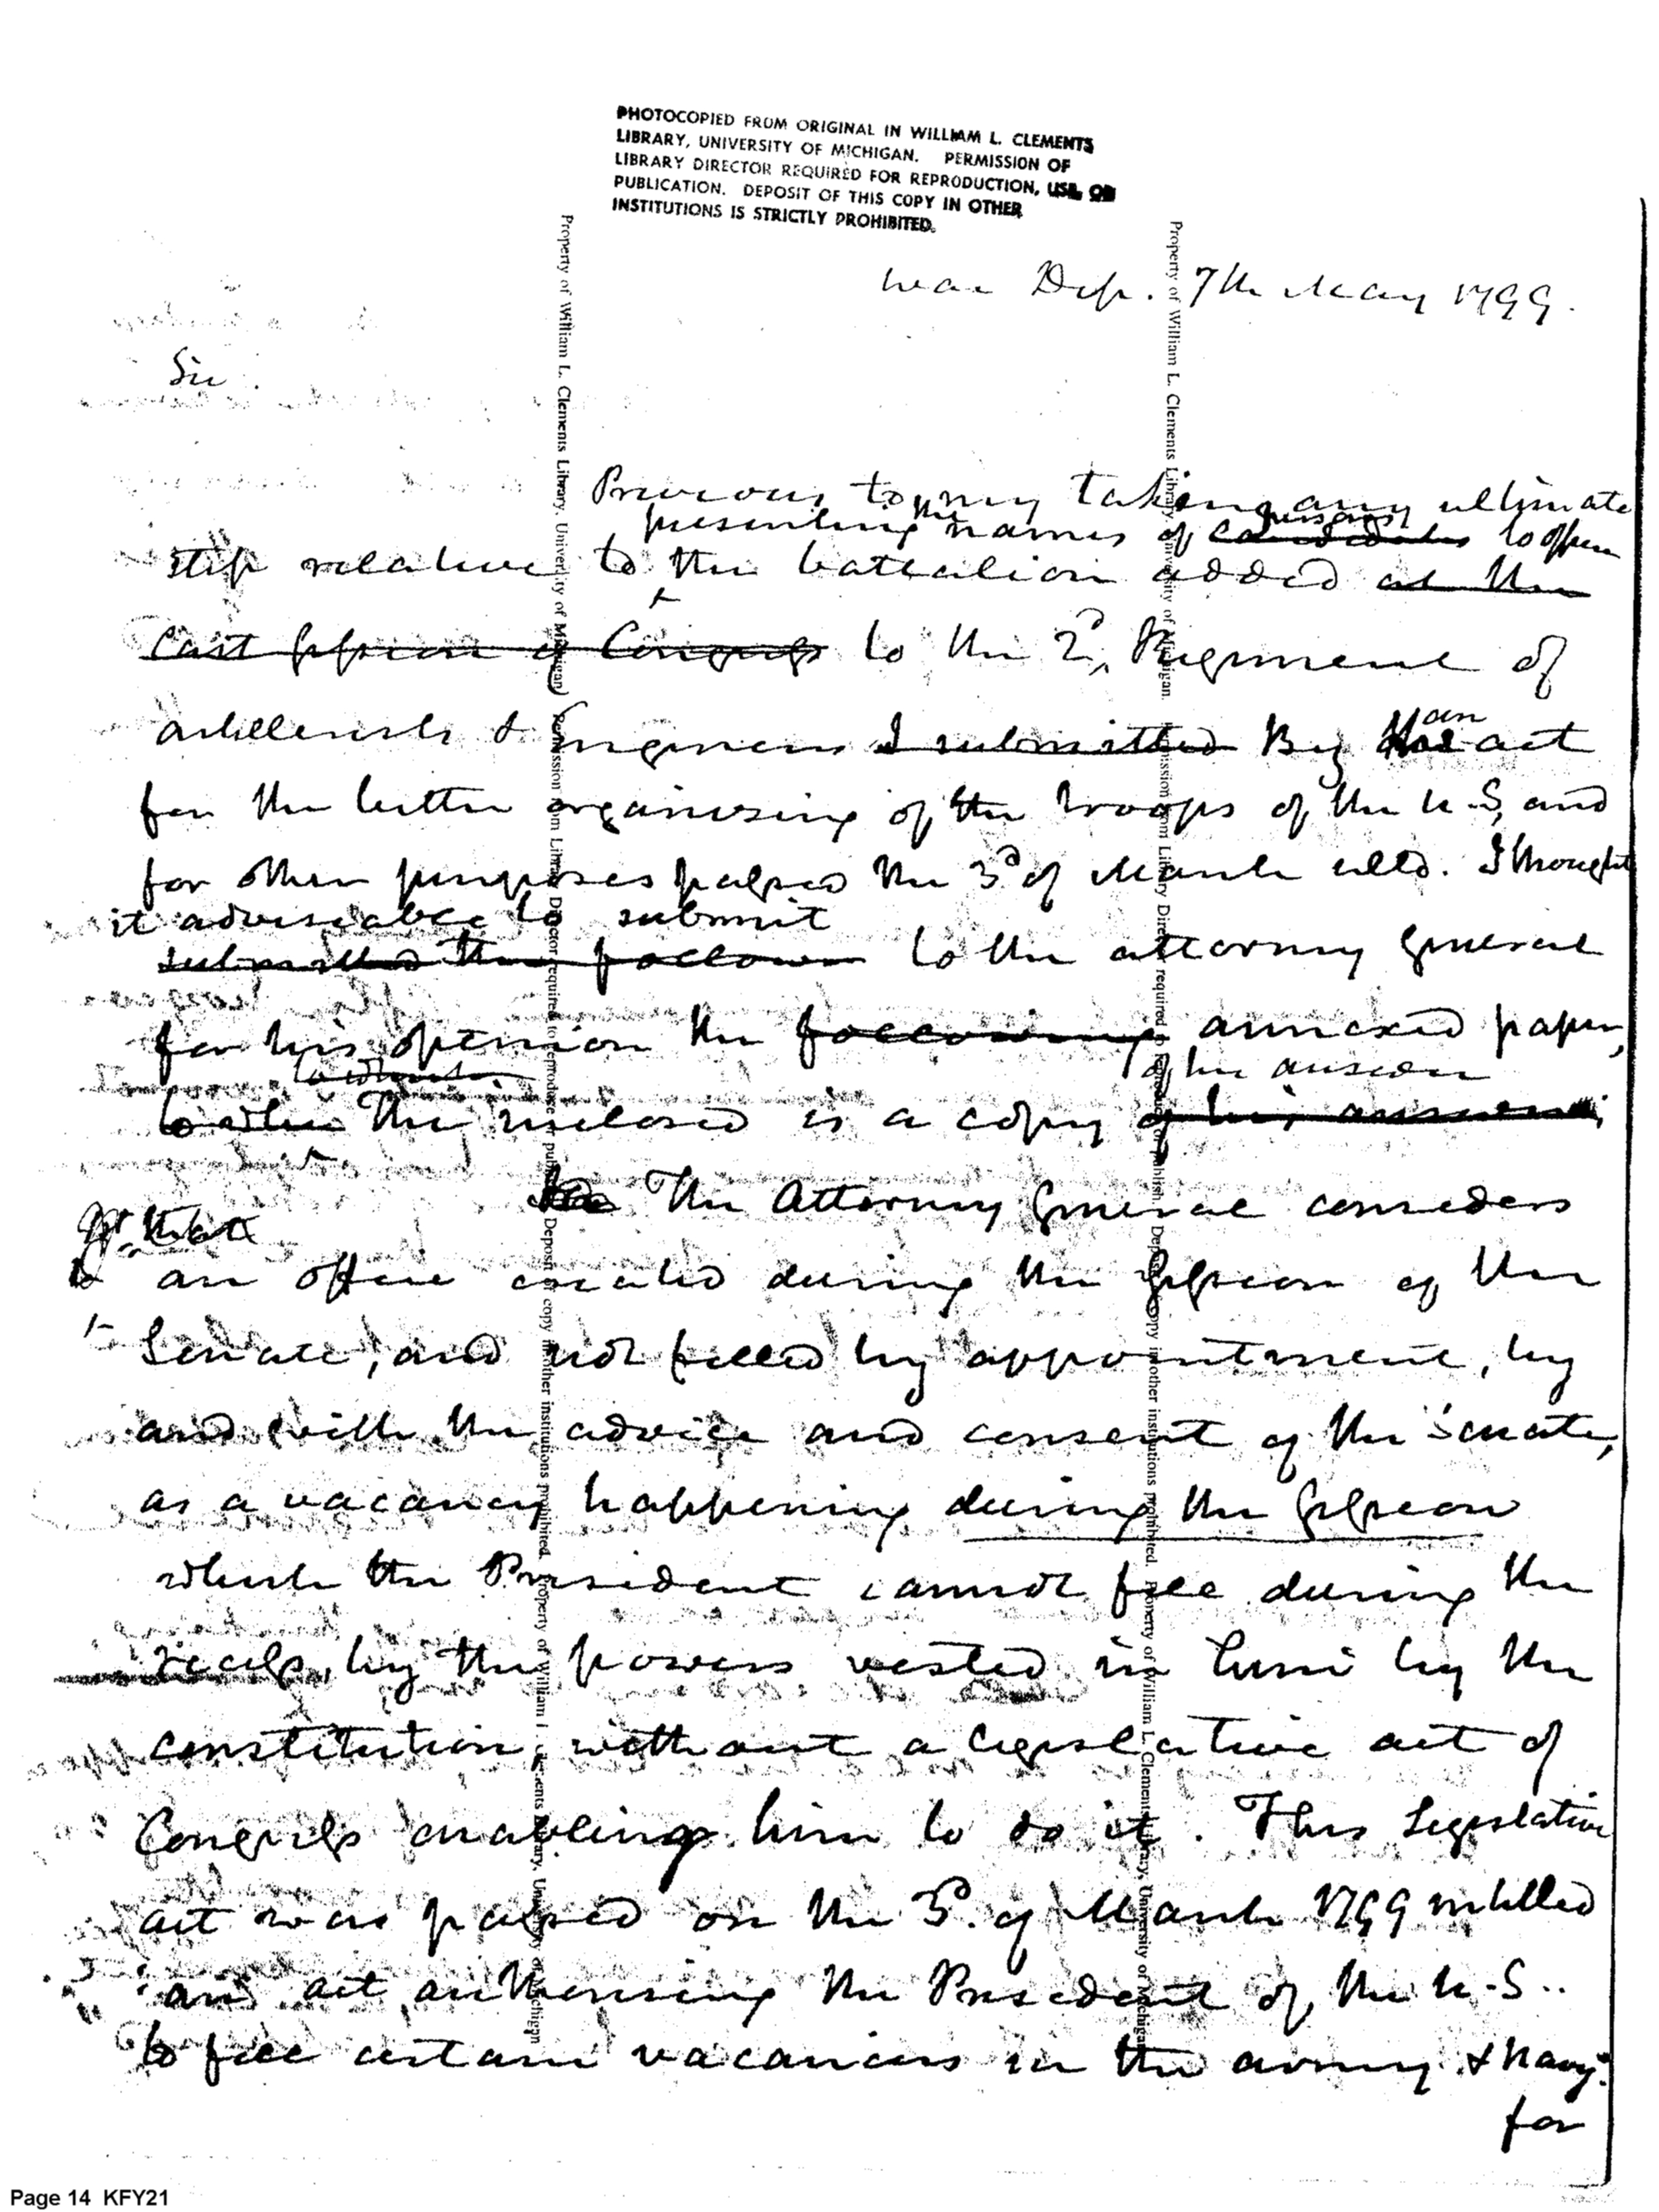 PHOTOCOPIED FROM ORIGINAL IN WILLIAM L. CLEMENTS
LIBRARY, UNIVERSITY OF MICHIGAN. PERMISSION OF
LIBRARY DIRECTOR REQUIRED FOR REPRODUCTION, USE, OR
PUBLICATION. DEPOSIT OF THIS COPY IN OTHER
INSTITUTIONS IS STRICTLY PROHIBITED.
War Dep. 7th May 1799.
Sir
Previous to my taking any ultimate
presenting the names of candidates persons to office
step relative to the battalion added at the
last session of Congress to the 2d Regiment of
artillerists & Engineers I submitted By an act
for the better organising of the troops of the U.S, and
for other purposes passed the 3d of March ulto. I thought
it adviseable to submit
submitted the follow to the attorney General
for his opinion the following annexed paper,
to which of his answer
to which The inclosed is a copy of his answer
The Attorney General considers
an office created during the session of the
Senate, and not filled by appointment, by
and with the advice and consent of the Senate,
as a vacancy happening during the session
which the President cannot fill during the
recess, by the powers vested in him by the
constitution, without a legislative act of
Congress enabling him to do it. This Legislative
act was passed on the 3d. of March 1799 intitled
an act authorising the President of the U.S..
to fill certain vacancies in the army & Navy.
for
Property of William L. Clements Library, University of Michigan. Permission from Library Director required to reproduce or publish. Deposit of copy in other institutions prohibited. Property of William L. Clements Library, University of Michigan
Property of William L. Clements Library, University of Michigan. Permission from Library Director required to reproduce or publish. Deposit of copy in other institutions prohibited. Property of William L. Clements Library, University of Michigan
Page 14 KFY21